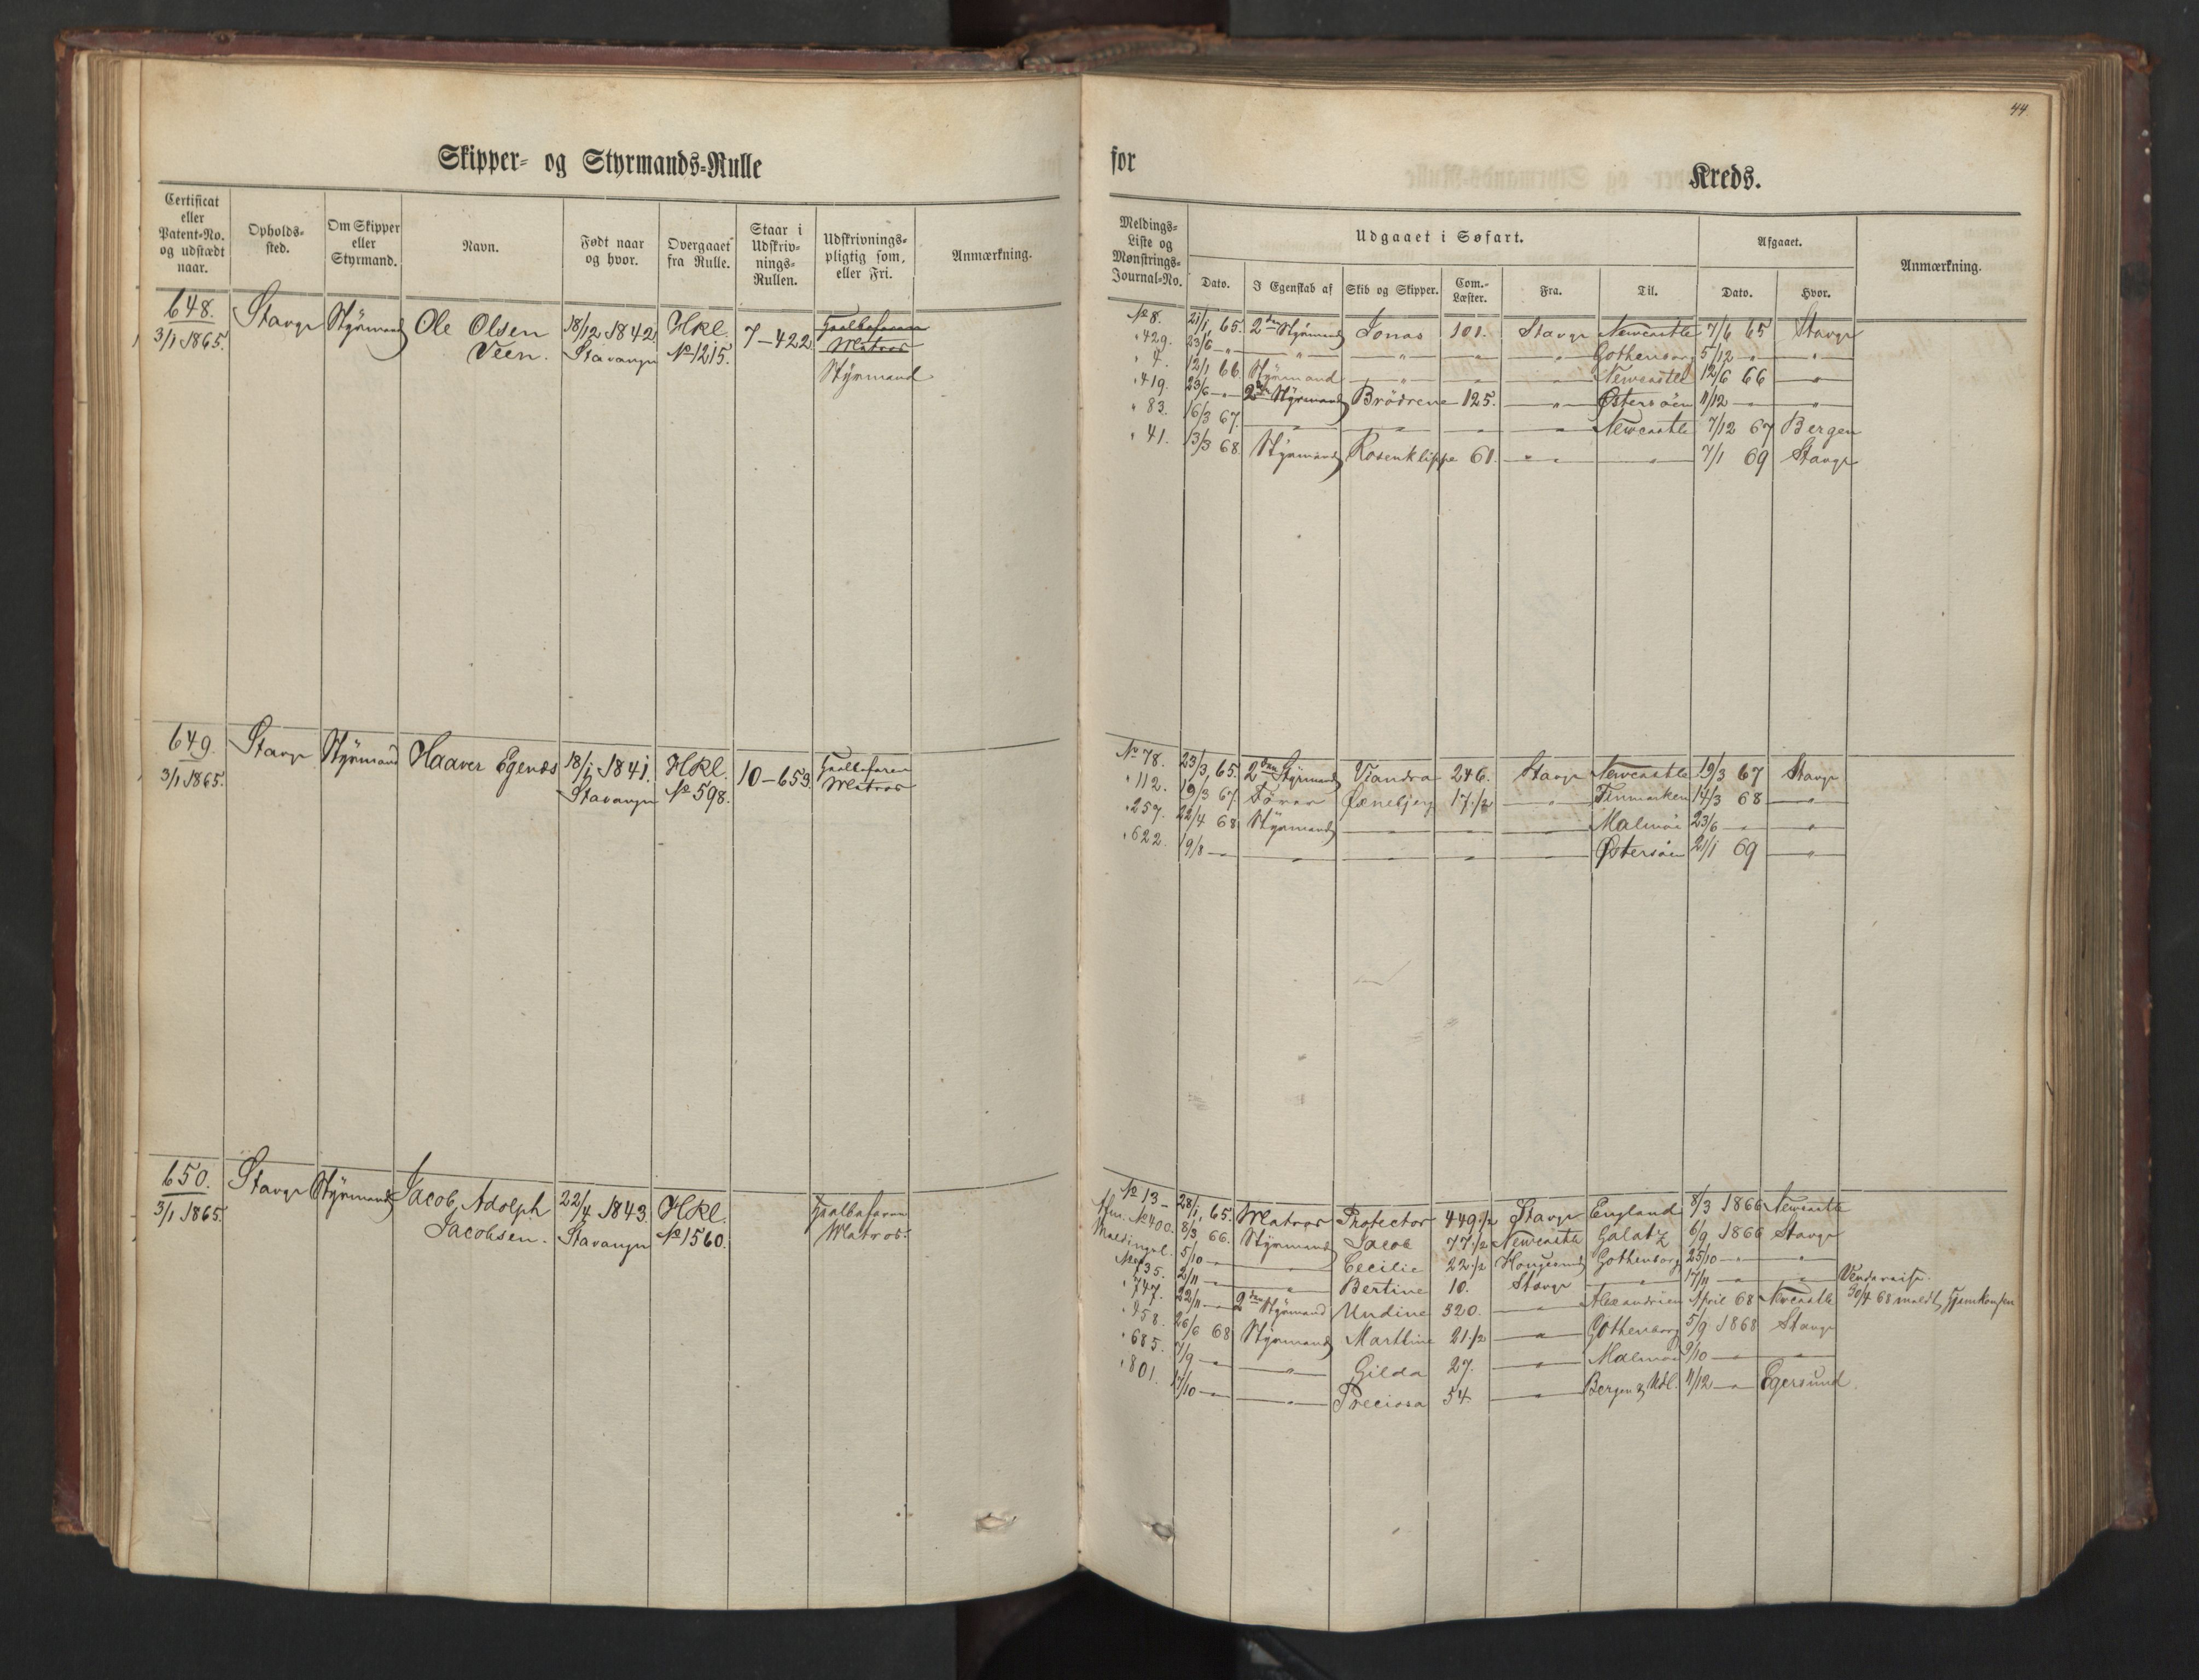 44
Skipper- og Styrmands-Rulle
for Kreds.
Certificat eller Patent-No. og udstædt naar.
Opholds-sted.
Om Skipper eller Styrmand.
Navn.
Født naar og hvor.
Overgaaet fra Rulle.
Staar i Udskriv-nings-Rullen.
Udskrivnings-pligtig som, eller Fri.
Anmærkning.
Meldings-Liste og Mønstrings-Journal-No.
Udgaaet i Søfart.
Afgaaet.
Anmærkning.
Dato.
I Egenskab af
Skib og Skipper.
Com.-Læster.
Fra.
Til.
Dato.
Hvor.
648. Stavgr Styrmand Ole Olsen 18/12 1842 Hkl. 7-422
3/1 1865. Veen. Stavanger No 1215. Matros
Styrmand
No 8. 21/1 65. 2den Styrmand Jonas 101. Stavgr Newcastle 7/6 65 Stavgr
" 429. 23/6 — " — " — — — " — Gothenborg 5/12 — — " —
" 7. 12/1 66 Styrmand — " — — — " — Newcastle 12/6 66 — " —
" 419. 23/6 — 2den Styrmand Brödrene 125. — " — Østersöen 11/12 — — " —
" 83. 16/3 67. — " — — " — — — " — Newcastle 7/12 67 Bergen
" 41. 13/3 68. Styrmand Rosenklippe 61. — " — — " — 7/1 69 Stavgr
649. Stavgr Styrmand Haaver Egenæs 18/1 1841. Hkl. 10-653
3/1 1865. Stavanger No 598. Matros
No 78. 23/3 65. 2den Styrmand Viandra 246. Stavgr Newcastle 19/3 67 Stavgr
" 112. 19/3 67. Förer 17 1/2 — " — Finmarken 14/3 68 — " —
" 257. 22/4 68 Styrmand — " — — — " — Malmöe 23/6 — — " —
" 622. 19/8 — — " — — " — — — " — Østersöen 21/1 69 — " —
650. Stavgr Styrmand Jacob Adolph 22/4 1843. Hkl.
3/1 1865. Jacobsen. Stavanger No 1560. Matros.
No 13 — 28/1 65. Matros Protector 449 1/2 Stavgr England 8/3 1866 Newcastle
No 400. 8/3 66. Styrmand Jacob 77 1/2 Newcastle Galatz 6/9 1866 Stavgr
5/10 — — " — Cecilie 22 1/2 Haugesund Gothenborg 25/10 — — " —
735. 2/11 — — " — Bertine 10. Stavgr — " — 17/11 — — " —
" 747. 22/11 — 2den Styrmand Undine 320. — " — Alexandrien April 68 Newcastle 30/4 68 meldt Hjemkomsten
" 458. 26/6 68 Styrmand Marthine 21 1/2 — " — Gothenborg 5/9 1868 Stavgr
" 685. 7/9 — — " — Gilda 27. — " — Malmöe 9/10 — — " —
" 801. 17/10 — — " — Preciosa 54. — " — Bergen & Udl. 11/12 — Egersund.